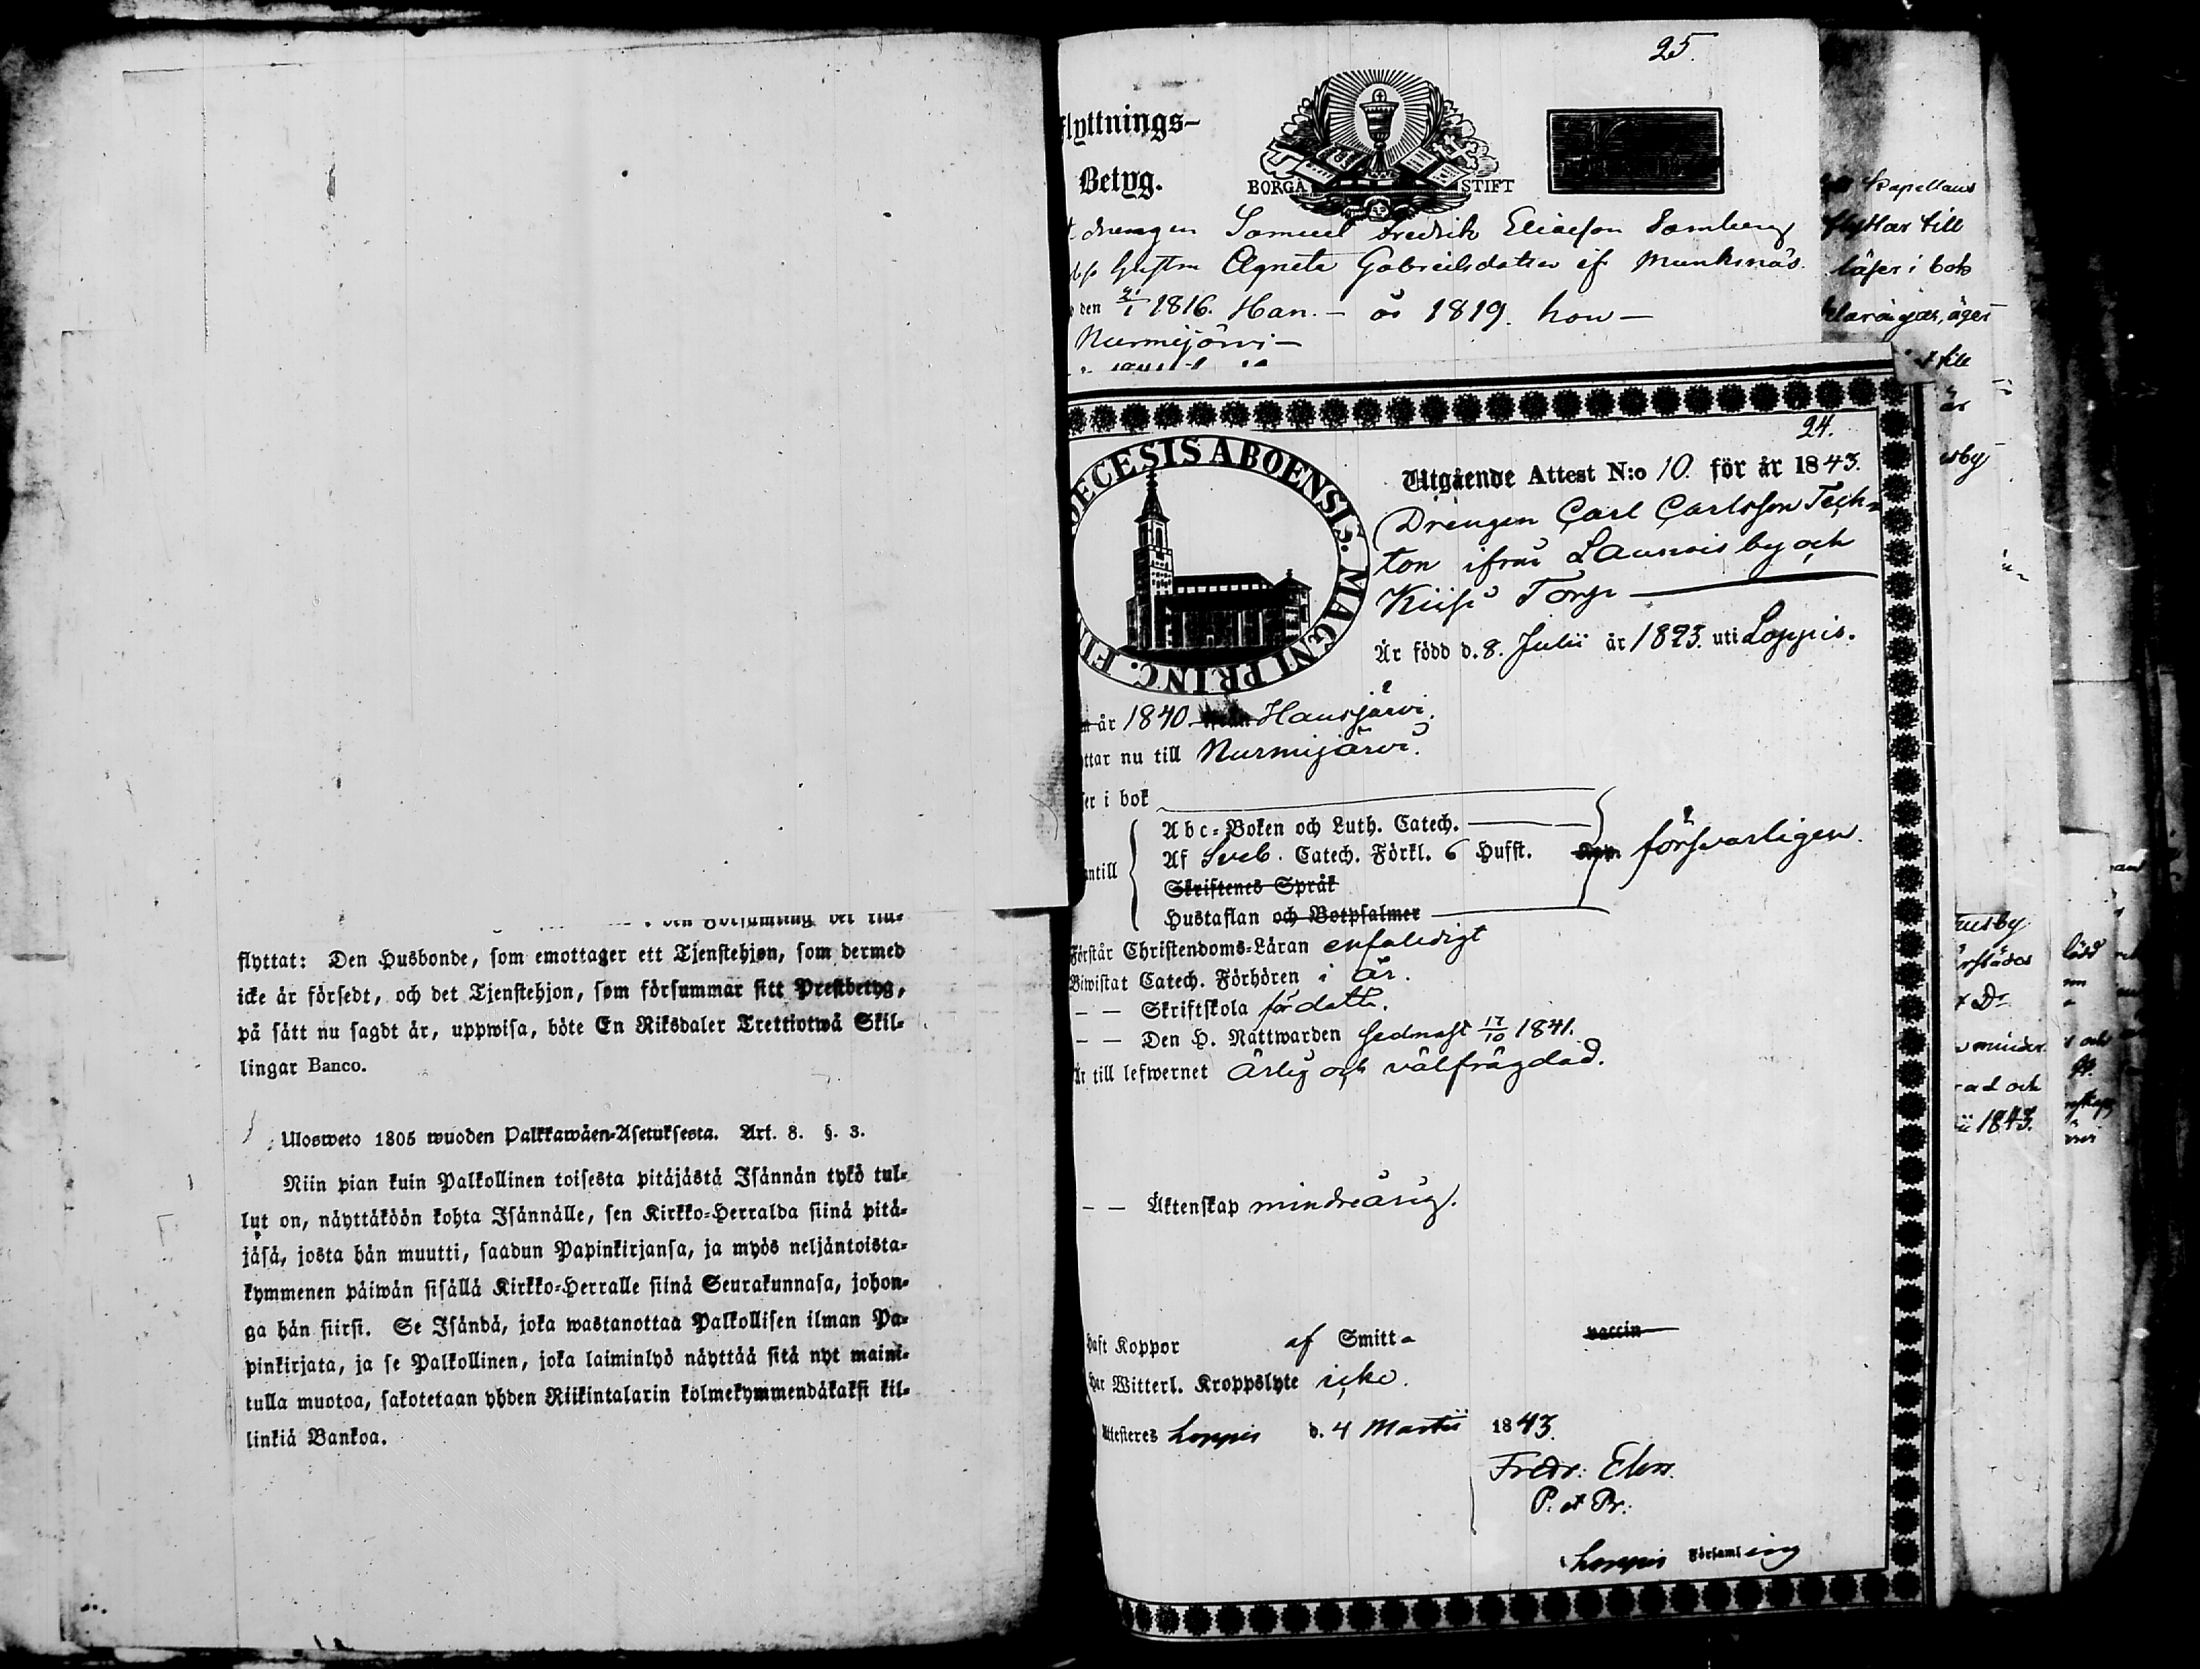 flyttat: Den Husbonde, som emottager ett Tjenstehjon, som dermed
icke är försedt, och det Tjenstehjon, som försummar sitt Prestbetyg,
på sätt nu sagdt är, uppwisa, böte En Riksdaler Trettiotwå Skil-
lingar Banco.
Ulosweto 1805 wuoden Palkkawäen-Asetuksesta. Art. 8. §. 3.
Niin pian kuin Palkollinen toisesta pitäjästä Isännän tykö tul-
lut on, näyttäköön kohta Isännälle, sen Kirkko-Herralda siinä pitä-
jäsä, josta hän muutti, saadun Papinkirjansa, ja myös neljäntoista-
kymmenen päiwän sisällä Kirkko-Herralle siinä Seurakunnasa, johon-
ga hän siirsi. Se Isändä, joka wastanottaa Palkollisen ilman Pa-
pinkirjata, ja se Palkollinen, joka laiminlyö näyttää sitä nyt maini-
tulla muotoa, sakotetaan yhden Riikintalarin kolmekymmendäkaksi kil-
linkiä Bankoa.
25.
flyttnings-
Betyg.
BORGÅ STIFT
drengen Samuel Fredrik Eliaeson Lamberg
Hustru Agneta Gabrielsdotter if Munksnäs.
den 21/1 1816. Han. – år 1819. hon –
Nurmijärvi –
24.
DECESIS ABOENSIS. MAGNI PRINC. FIN
Utgående Attest N:o 10. för år 1843.
Drengen Carl Carlsson Tech-
ton ifrån Launois by och
Kiisu Torp
Är född d. 8. Julii år 1823. uti Loppis.
år 1840. Hausjärvi.
ttar nu till Nurmijärvi.
ser i bok
Abc-Boken och Luth. Catech.
Af Sveb. Catech. Förkl. 6 Hufst. försvarligen.
ntill
Skriftenes Språk
Hustaflan och Botpsalmer
Förstår Christendoms-Läran enfaldigt
Biwistat Catech. Förhören i år.
– – Skriftskola för detta.
– – Den H. Nattwarden sednast 17/10 1841.
Är till lefwernet Ärlig och välfrägdad.
– – Äktenskap mindreårig.
Haft Koppor af Smitta vaccin
Har Witterl. Kroppslyte icke.
Attesteres Loppis d. 4 Martii 1843.
Fredr: Elers.
P. et Pr:
Loppis Församling
Kapellans
flyttar till
läser i bok
till
är
1843.